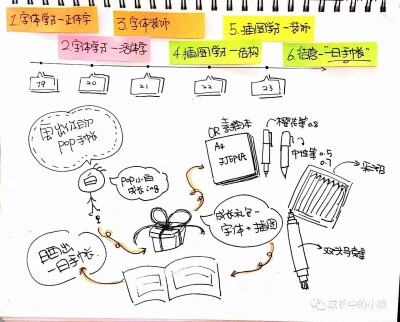 1.字体学习-正体字
3.字体装饰
5.插图学习-装饰
2.字体学习-活体字
4.插图学习-结构
6.结营-"一日手帐"
19
20
21
22
23
画出优的
POP手帐
POP小白
成长ing
OR 素描本
A4
打印纸
中性笔 0.5
0.7
彩铅
成长礼包-
字体+插图
画出
一日手帐
双头马克笔
成长中的小霞